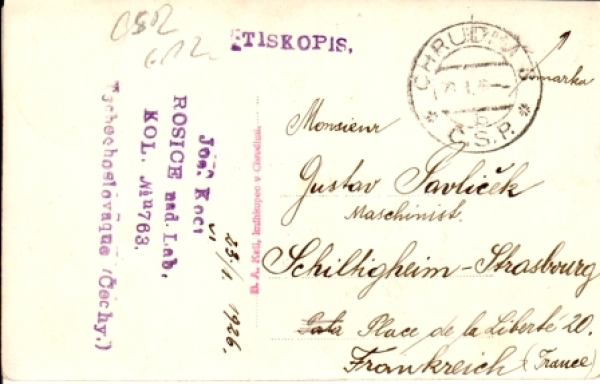 TISKOPIS.
CHRUDIM
b
Č.S.P.
Josef Kočí
ROSICE nad. Lab.
KOL. Nu 763.
Tschechoslovaque (Čechy.)
23./I. 1926.
B. A. Keil, knihkupec v Chrudimi.
Monsieur
Gustav Pavlíček
Maschinist.
Schiltigheim - Strasbourg
Place de la Liberté 20.
Frankreich (France)